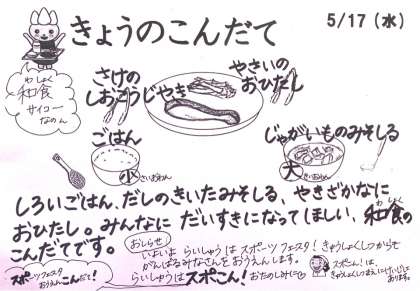 きょうのこんだて
5/17（水）
わしょく
和食
サイコー
なのん
さけの
しおこうじやき
やさいの
おひたし
ごはん
小さいおわん
じゃがいものみそしる
大きいおわん
しろいごはん、だしのきいたみそしる、やきざかなに
おひたし。みんなに だいすきになってほしい、和食の
わしょく
こんだてです。
おしらせ
いよいよ らいしゅうは スポーツフェスタ！きゅうしょくしつからも
がんばるみなさんを おうえんします。
らいしゅうはスポこん！おたのしみに
スポーツフェスタ
おうえんこんだて！
スポこん！は、
きゅうしょくしつまえにけいじに
あります。